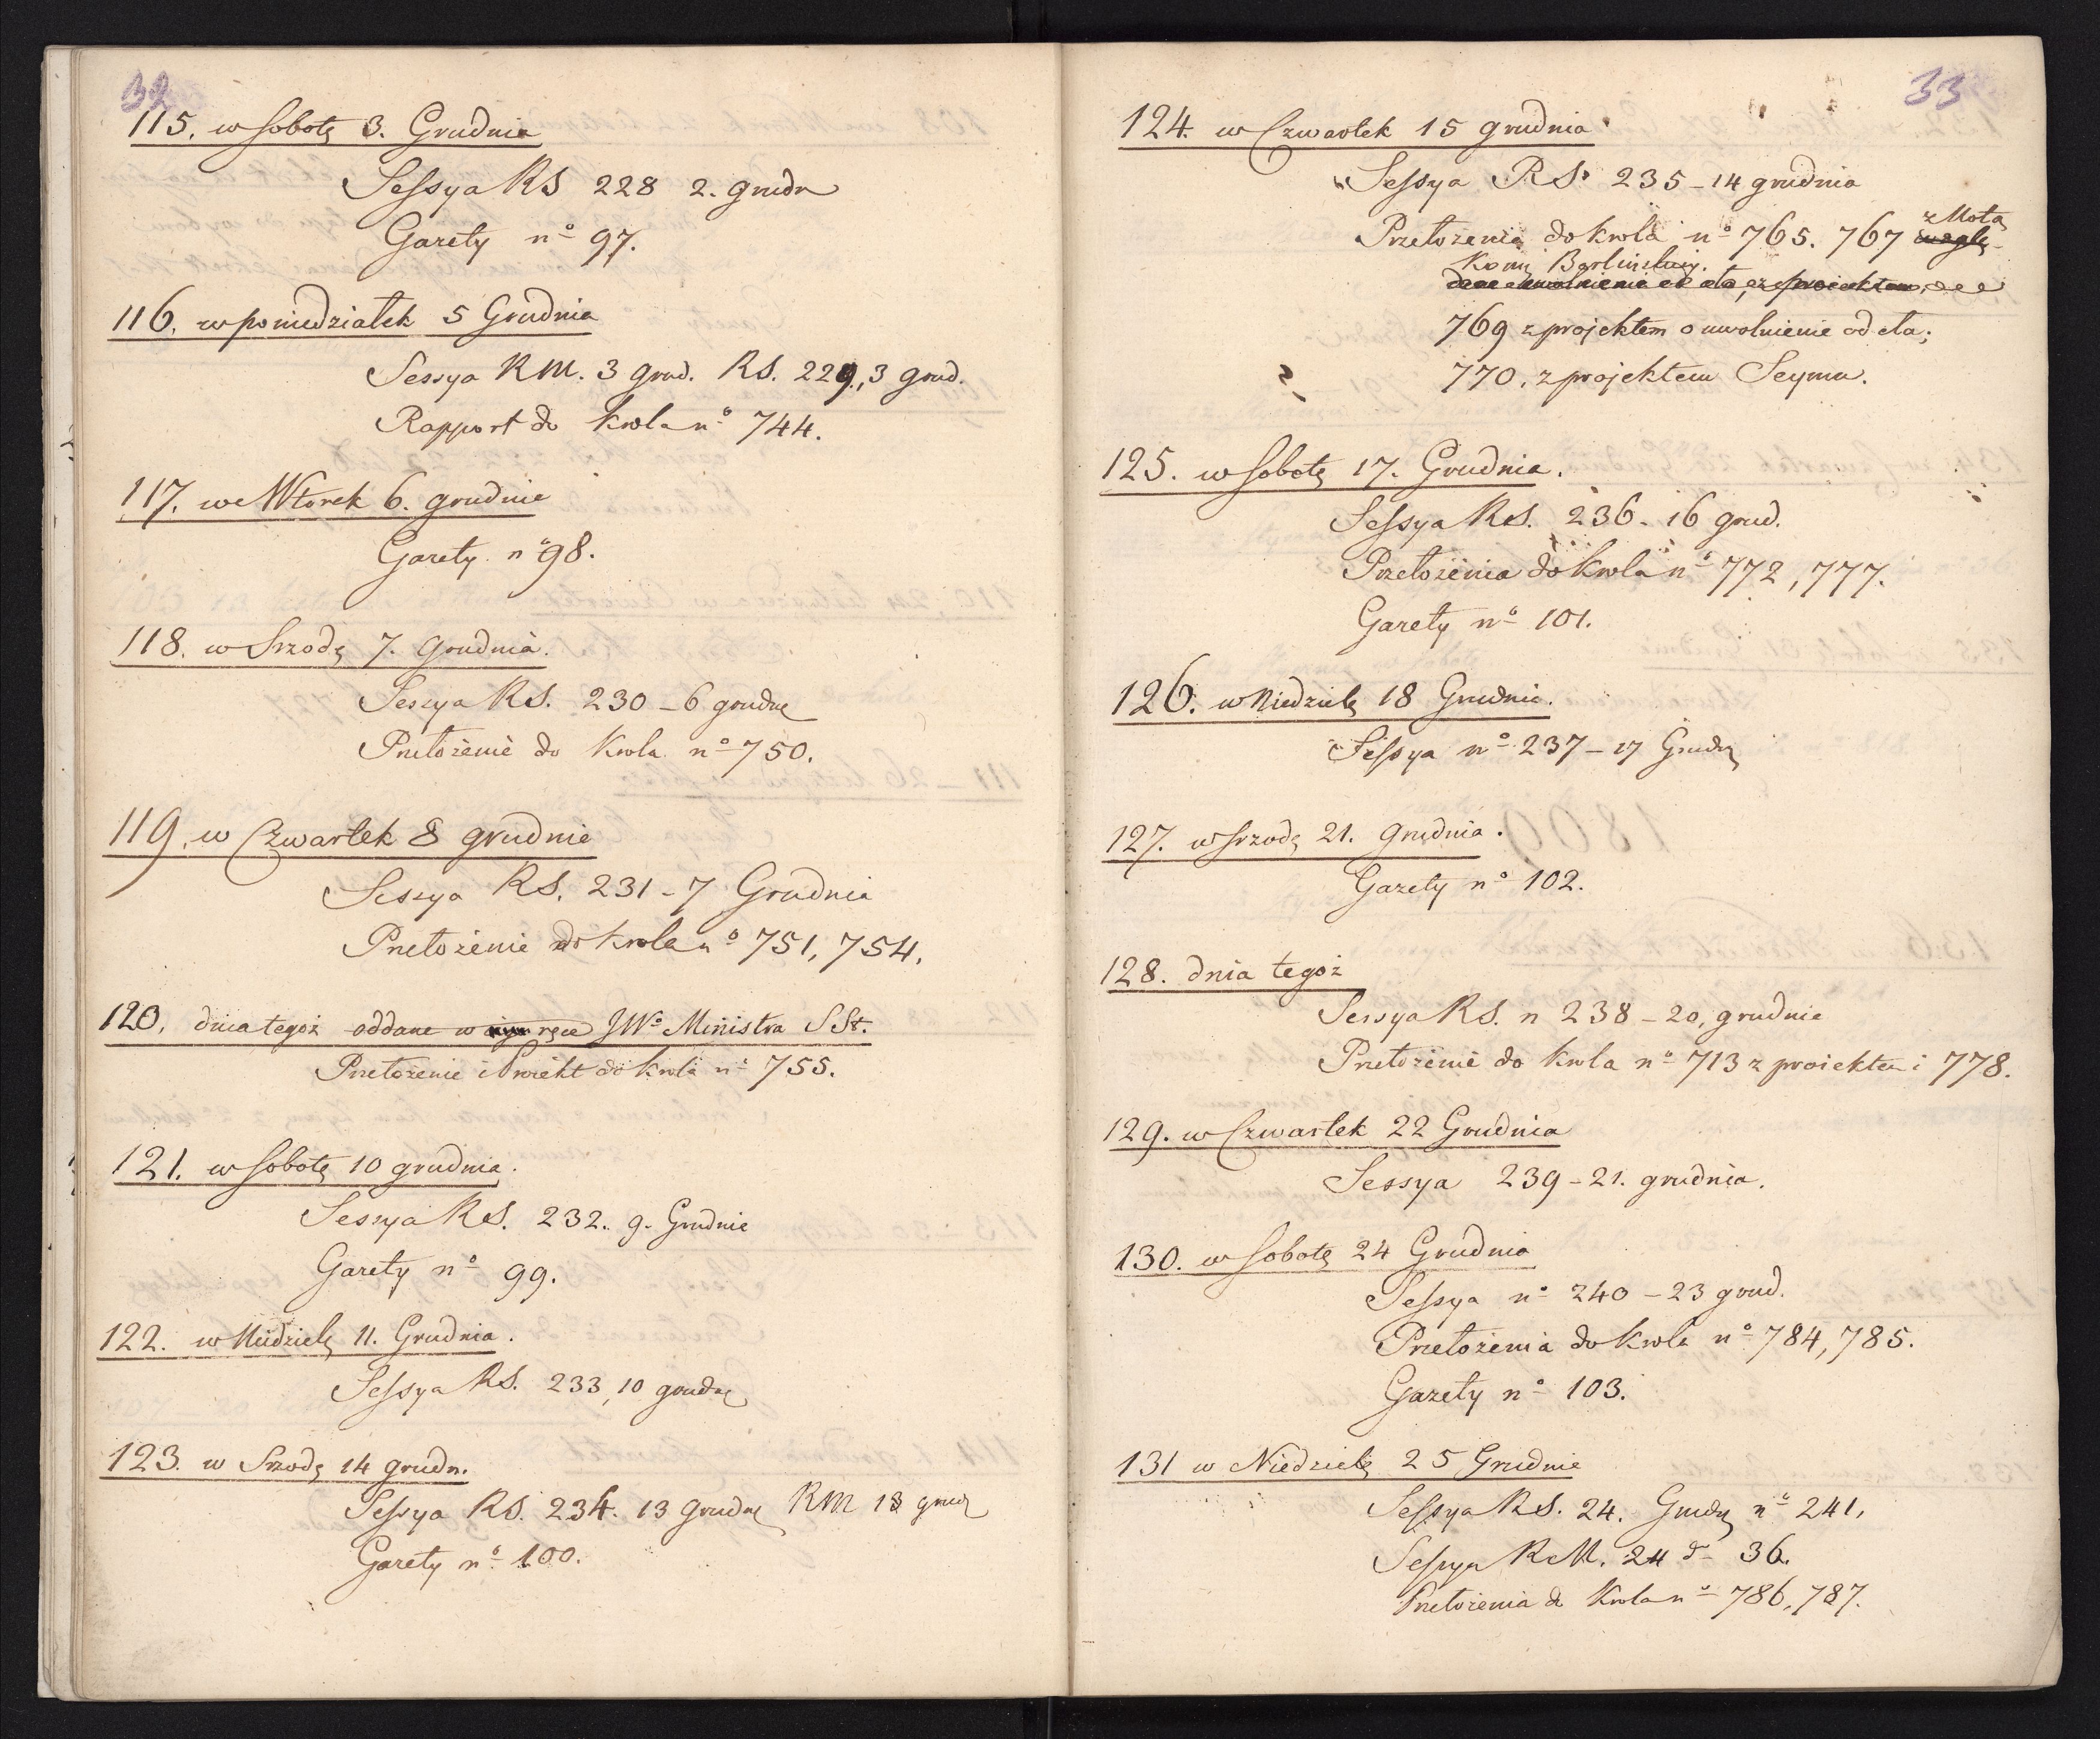 32
115. w Sobotę 3. Grudnia
Sessya RS 228 2. grudn
Gazety nº 97.
116. w poniedziałek 5 Grudnia
Sessya RM. 3 grud. RS. 229, 3 grud.
Rapport do krola nº 744.
117. we Wtorek 6. grudnia
Gazety nº 98.
118. w Srzodę 7. Grudnia.
Sessya RS. 230 – 6 grudn
Przełożenie do Krola nº 750.
119. w Czwartek 8 grudnia
Sessya RS. 231 – 7 Grudnia
Przełożenie do krola nº 751, 754.
120. dnia tegoż oddane w ręce JWº Ministra SSt.
Przełożenie i Proiekt do Krola nº 755.
121. w Sobotę 10 grudnia.
Sessya RS. 232. 9. Grudnia
Gazety nº 99.
122. w Niedzielę 11. Grudnia.
Sessya RS. 233, 10 grudn
123. w Srzodę 14 grudn.
Sessya RS. 234. 13 Grudn RM 13 grud
Gazety nº 100.
33
124. w Czwartek 15 grudnia
Sessya RS. 235 – 14 grudnia
z Notą
Przełożenia do krola nº 765. 767
Komi Berlinskiey.
769 z projektem o uwolnienie od cła;
770. z projektem Seymu.
125. w Sobotę 17. Grudnia.
Sessya RS. 236. 16 grud.
Przełożenia do Krola nº 772, 777.
Gazety nº 101.
126. w Niedzielę 18 Grudnia.
Sessya nº 237 – 17 Grudn
127. w Srzodę 21. Grudnia.
Gazety nº 102.
128. dnia tegoż
Sessya RS. n 238 – 20, grudnia
Przełożenie do krola nº 713 z proiektem i 778.
129. w Czwartek 22 Grudnia
Sessya 239 – 21. grudnia.
130. w Sobotę 24 Grudnia
Sessya nº 240 – 23 grud.
Przełożenia do krola nº 784, 785.
Gazety nº 103.
131 w Niedzielę 25 Grudnia
Sessya RS. 24. Grudn nº 241,
Sessya RM. 24 dº 36.
Przełożenia do Krola nº 786, 787.